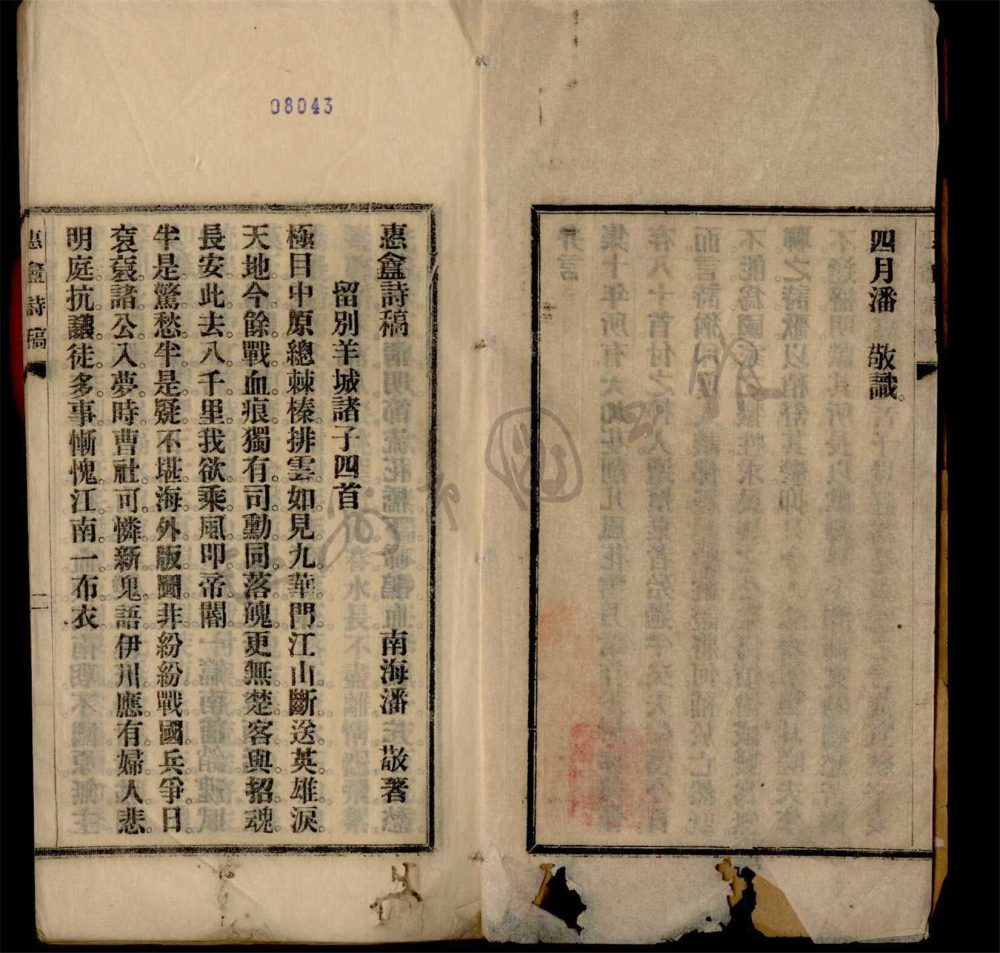 四月潘　敬識。
08043
悳盦詩稿　南海潘　敬著
留別羊城諸子四首
極目中原總棘榛。排雲如見九華門。江山斷送英雄淚。
天地今餘戰血痕。獨有司勳同落魄。更無楚客與招魂。
長安此去八千里。我欲乘風叩帝閽。
半是驚愁半是疑。不堪海外版圖非。紛紛戰國兵爭日。
袞袞諸公入夢時。曹社可憐新鬼語。伊川應有婦人悲。
明庭抗議徒多事。慚愧江南一布衣。
悳盦詩稿
一